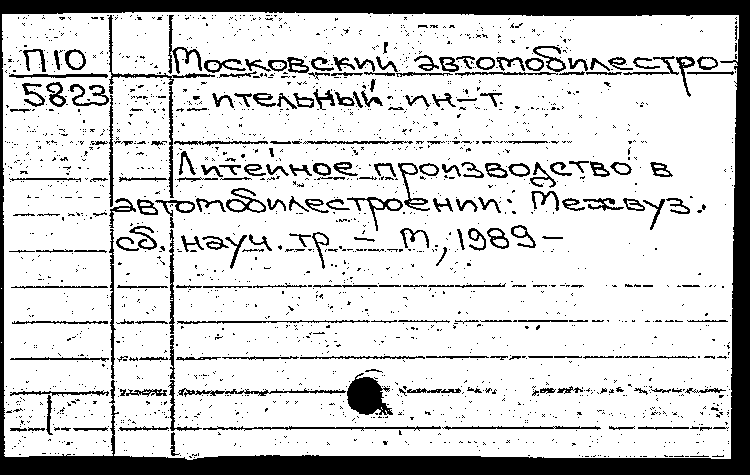 П10 Московский автомобилестро-
5823 ительный ин-т.
Литейное производство в
автомобилестроении: Межвуз.
сб. науч. тр. – М., 1989 –